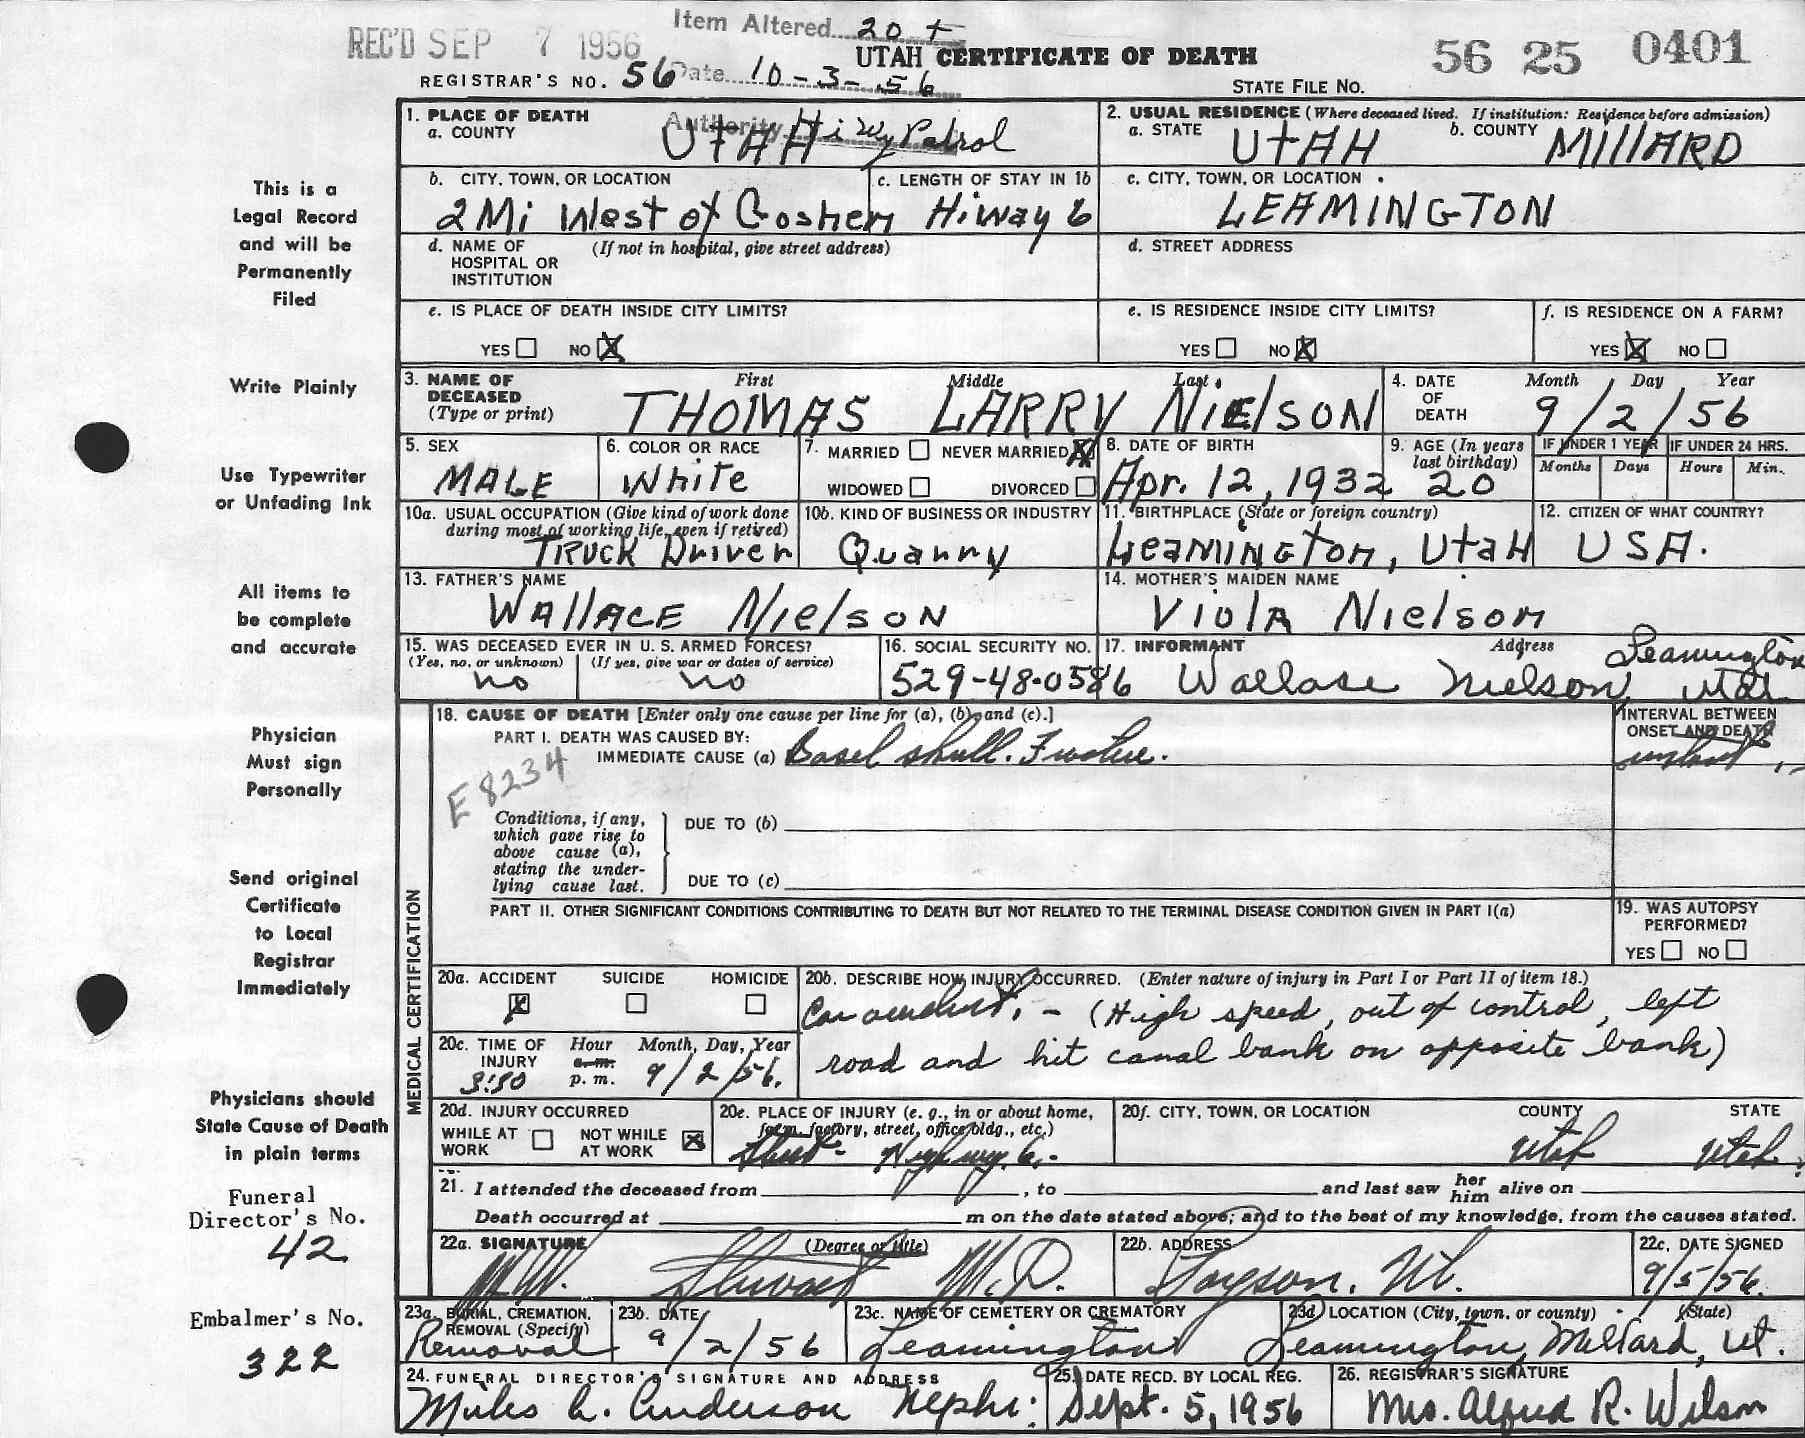 Item Altered....20 +
REC'D SEP 7 1956
UTAH CERTIFICATE OF DEATH
56 25 0401
REGISTRAR'S NO. 56
Date....10-3-56
STATE FILE NO.
Authority HiWy Patrol
1. PLACE OF DEATH
a. COUNTY
UTAH
2. USUAL RESIDENCE (Where deceased lived. If institution: Residence before admission)
a. STATE UTAH b. COUNTY MILLARD
b. CITY, TOWN, OR LOCATION
2 Mi West of Goshen
c. LENGTH OF STAY IN 1b
Hiway 6
c. CITY, TOWN, OR LOCATION
LEAMINGTON
d. NAME OF HOSPITAL OR INSTITUTION (If not in hospital, give street address)
d. STREET ADDRESS
e. IS PLACE OF DEATH INSIDE CITY LIMITS?
YES NO X
e. IS RESIDENCE INSIDE CITY LIMITS?
YES NO X
f. IS RESIDENCE ON A FARM?
YES X NO
3. NAME OF DECEASED (Type or print)
First Middle Last
THOMAS LARRY NIELSON
4. DATE OF DEATH
Month Day Year
9/2/56
5. SEX
MALE
6. COLOR OR RACE
White
7. MARRIED NEVER MARRIED X
WIDOWED DIVORCED
8. DATE OF BIRTH
Apr. 12, 1932
9. AGE (In years last birthday)
20
IF UNDER 1 YEAR
Months Days
IF UNDER 24 HRS.
Hours Min.
10a. USUAL OCCUPATION (Give kind of work done during most of working life, even if retired)
TRUCK Driver
10b. KIND OF BUSINESS OR INDUSTRY
Quarry
11. BIRTHPLACE (State or foreign country)
Leamington, Utah
12. CITIZEN OF WHAT COUNTRY?
USA.
13. FATHER'S NAME
WALLACE Nielson
14. MOTHER'S MAIDEN NAME
Viola Nielson
15. WAS DECEASED EVER IN U. S. ARMED FORCES?
(Yes, no, or unknown) (If yes, give war or dates of service)
no no
16. SOCIAL SECURITY NO.
529-48-0586
17. INFORMANT Address
Wallase Nielson Leamington Utah
MEDICAL CERTIFICATION
18. CAUSE OF DEATH [Enter only one cause per line for (a), (b), and (c).]
PART I. DEATH WAS CAUSED BY:
IMMEDIATE CAUSE (a) Basel skull. Fracture.
INTERVAL BETWEEN ONSET AND DEATH
instant
E8234
Conditions, if any, which gave rise to above cause (a), stating the underlying cause last.
DUE TO (b)
DUE TO (c)
PART II. OTHER SIGNIFICANT CONDITIONS CONTRIBUTING TO DEATH BUT NOT RELATED TO THE TERMINAL DISEASE CONDITION GIVEN IN PART I(a)
19. WAS AUTOPSY PERFORMED?
YES NO
20a. ACCIDENT SUICIDE HOMICIDE
X
20b. DESCRIBE HOW INJURY OCCURRED. (Enter nature of injury in Part I or Part II of item 18.)
Car accident. - (High speed, out of control, left
road and hit canal bank on opposite bank)
20c. TIME OF INJURY Hour Month, Day, Year
a. m.
3:30 p. m. 9/2/56.
20d. INJURY OCCURRED
WHILE AT WORK NOT WHILE AT WORK X
20e. PLACE OF INJURY (e. g., in or about home, farm, factory, street, office bldg., etc.)
Street - Highway 6.-
20f. CITY, TOWN, OR LOCATION COUNTY STATE
Utah Utah
21. I attended the deceased from , to and last saw her him alive on
Death occurred at m on the date stated above; and to the best of my knowledge, from the causes stated.
22a. SIGNATURE (Degree or title)
Stewart M.D.
22b. ADDRESS
Payson, Ut.
22c. DATE SIGNED
9/5/56.
23a. BURIAL, CREMATION, REMOVAL (Specify)
Removal
23b. DATE
9/2/56
23c. NAME OF CEMETERY OR CREMATORY
Leamington
23d LOCATION (City, town, or county) (State)
Leamington, Millard, Ut.
24. FUNERAL DIRECTOR'S SIGNATURE AND ADDRESS
Miles L. Anderson Nephi:
25. DATE RECD. BY LOCAL REG.
Sept. 5, 1956
26. REGISTRAR'S SIGNATURE
Mrs. Alfred R. Wilson
This is a
Legal Record
and will be
Permanently
Filed
Write Plainly
Use Typewriter
or Unfading Ink
All items to
be complete
and accurate
Physician
Must sign
Personally
Send original
Certificate
to Local
Registrar
Immediately
Physicians should
State Cause of Death
in plain terms
Funeral
Director's No.
42
Embalmer's No.
322